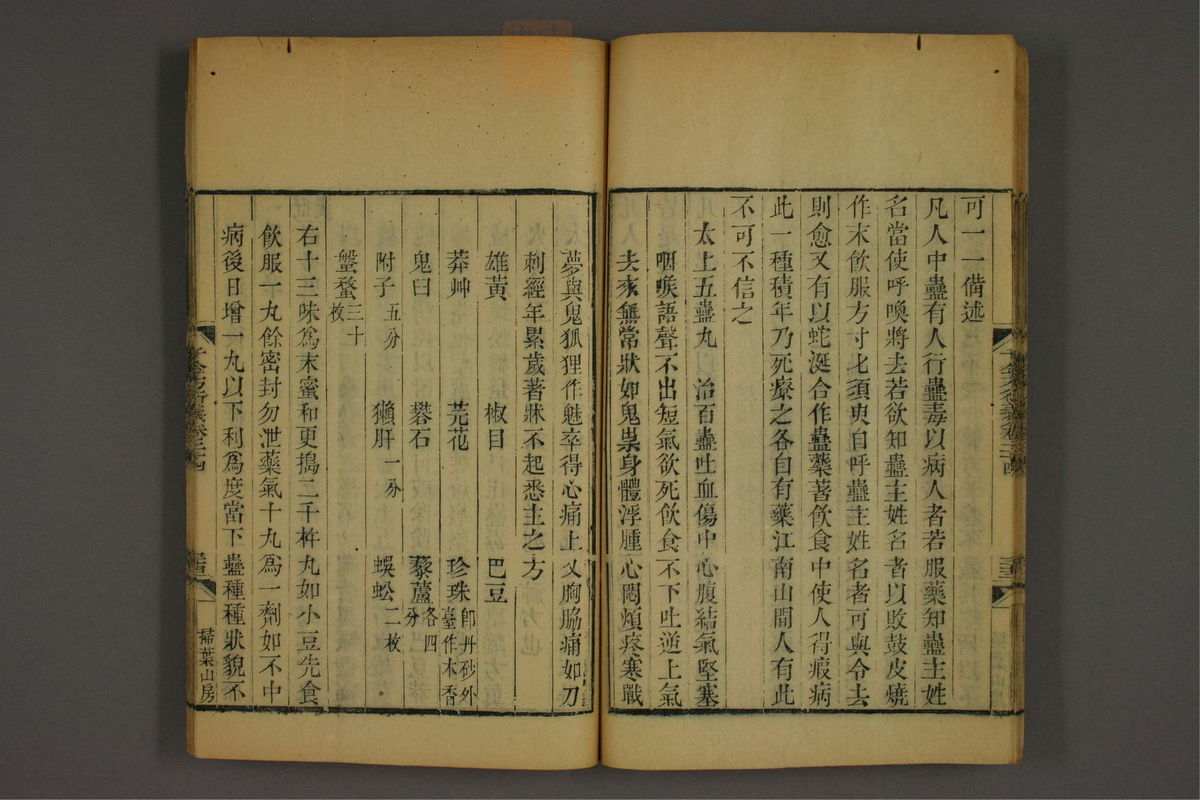 可一一備述
凡人中蠱有人行蠱毒以病人者若服藥知蠱主姓
名當使呼喚將去若欲知蠱主姓名者以敗鼓皮燒
作末飲服方寸匕須臾自呼蠱主姓名者可與令去
則愈又有以蛇涎合作蠱藥著飲食中使人得瘕病
此一種積年乃死療之各自有藥江南山間人有此
不可不信之
太上五蠱丸 治百蠱吐血傷中心腹結氣堅塞
咽喉語聲不出短氣欲死飲食不下吐逆上氣
去來無常狀如鬼祟身體浮腫心悶煩疼寒戰
夢與鬼狐狸作魅卒得心痛上乂胸脇痛如刀
刺經年累歲著牀不起悉主之方
雄黃 椒目 巴豆
莽艸 芫花 珍珠卽丹砂外臺作木香
鬼臼 礬石 藜蘆各四分
附子五分 獺肝一分 蜈蚣二枚
盤蝥三十枚
右十三味爲末蜜和更搗二千杵丸如小豆先食
飲服一丸餘密封勿泄藥氣十丸爲一劑如不中
病後日增一丸以下利爲度當下蠱種種狀貌不
掃葉山房